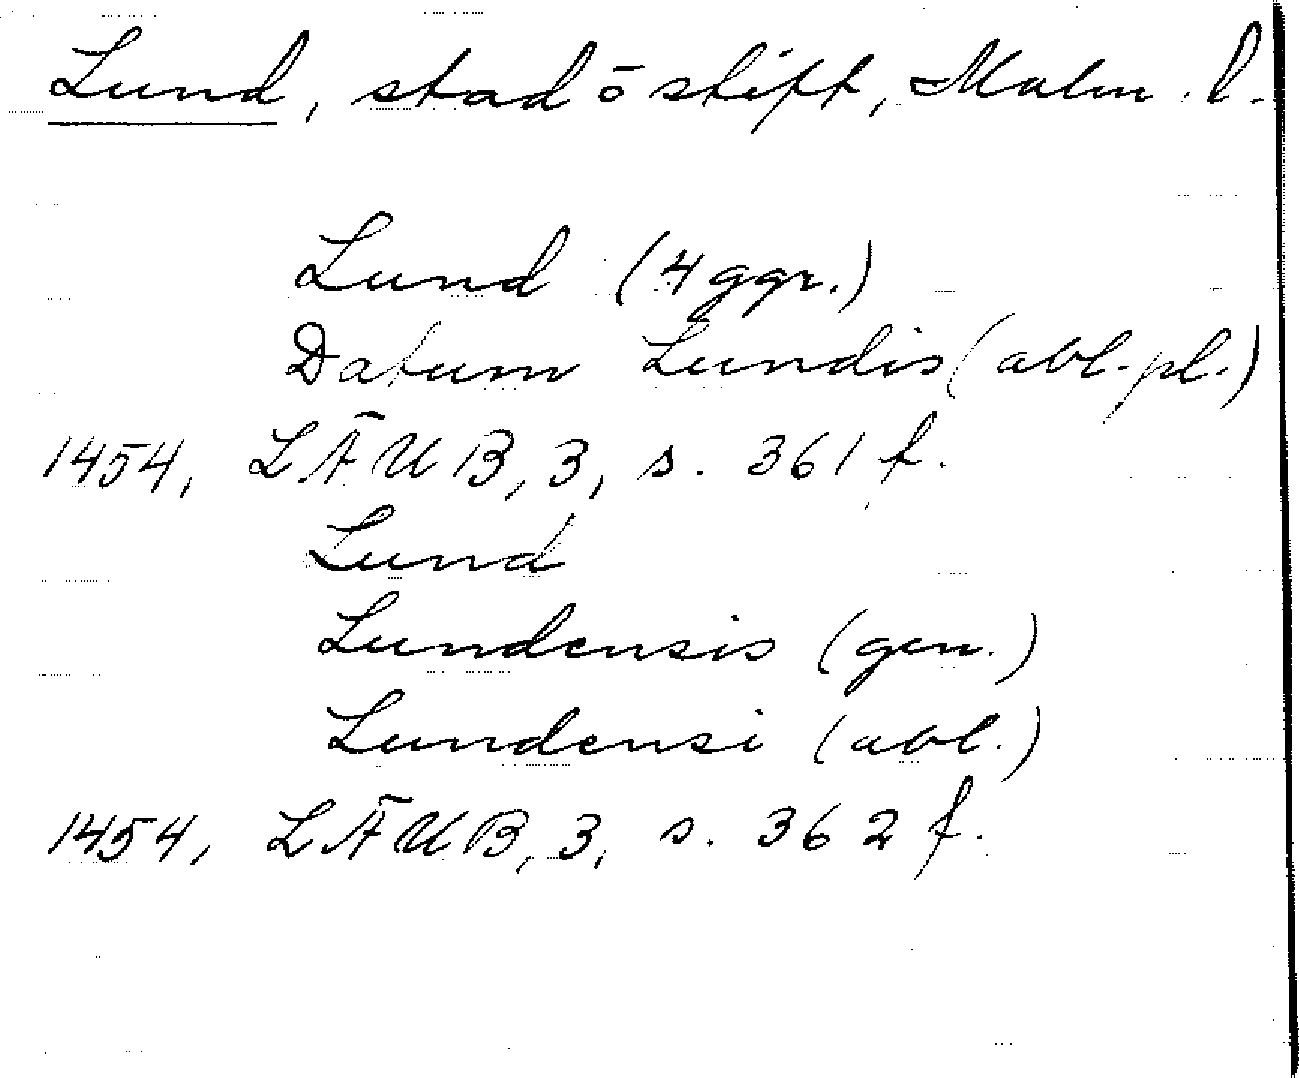 Lund, stad o stift, Malm. l.
Lund (4 ggr.)
Datum Lundis (abl. pl.)
1454, LÄUB, 3, s. 361 f.
Lund
Lundensis (gen.)
Lundensi (abl.)
1454, LÄUB, 3, s. 362 f.